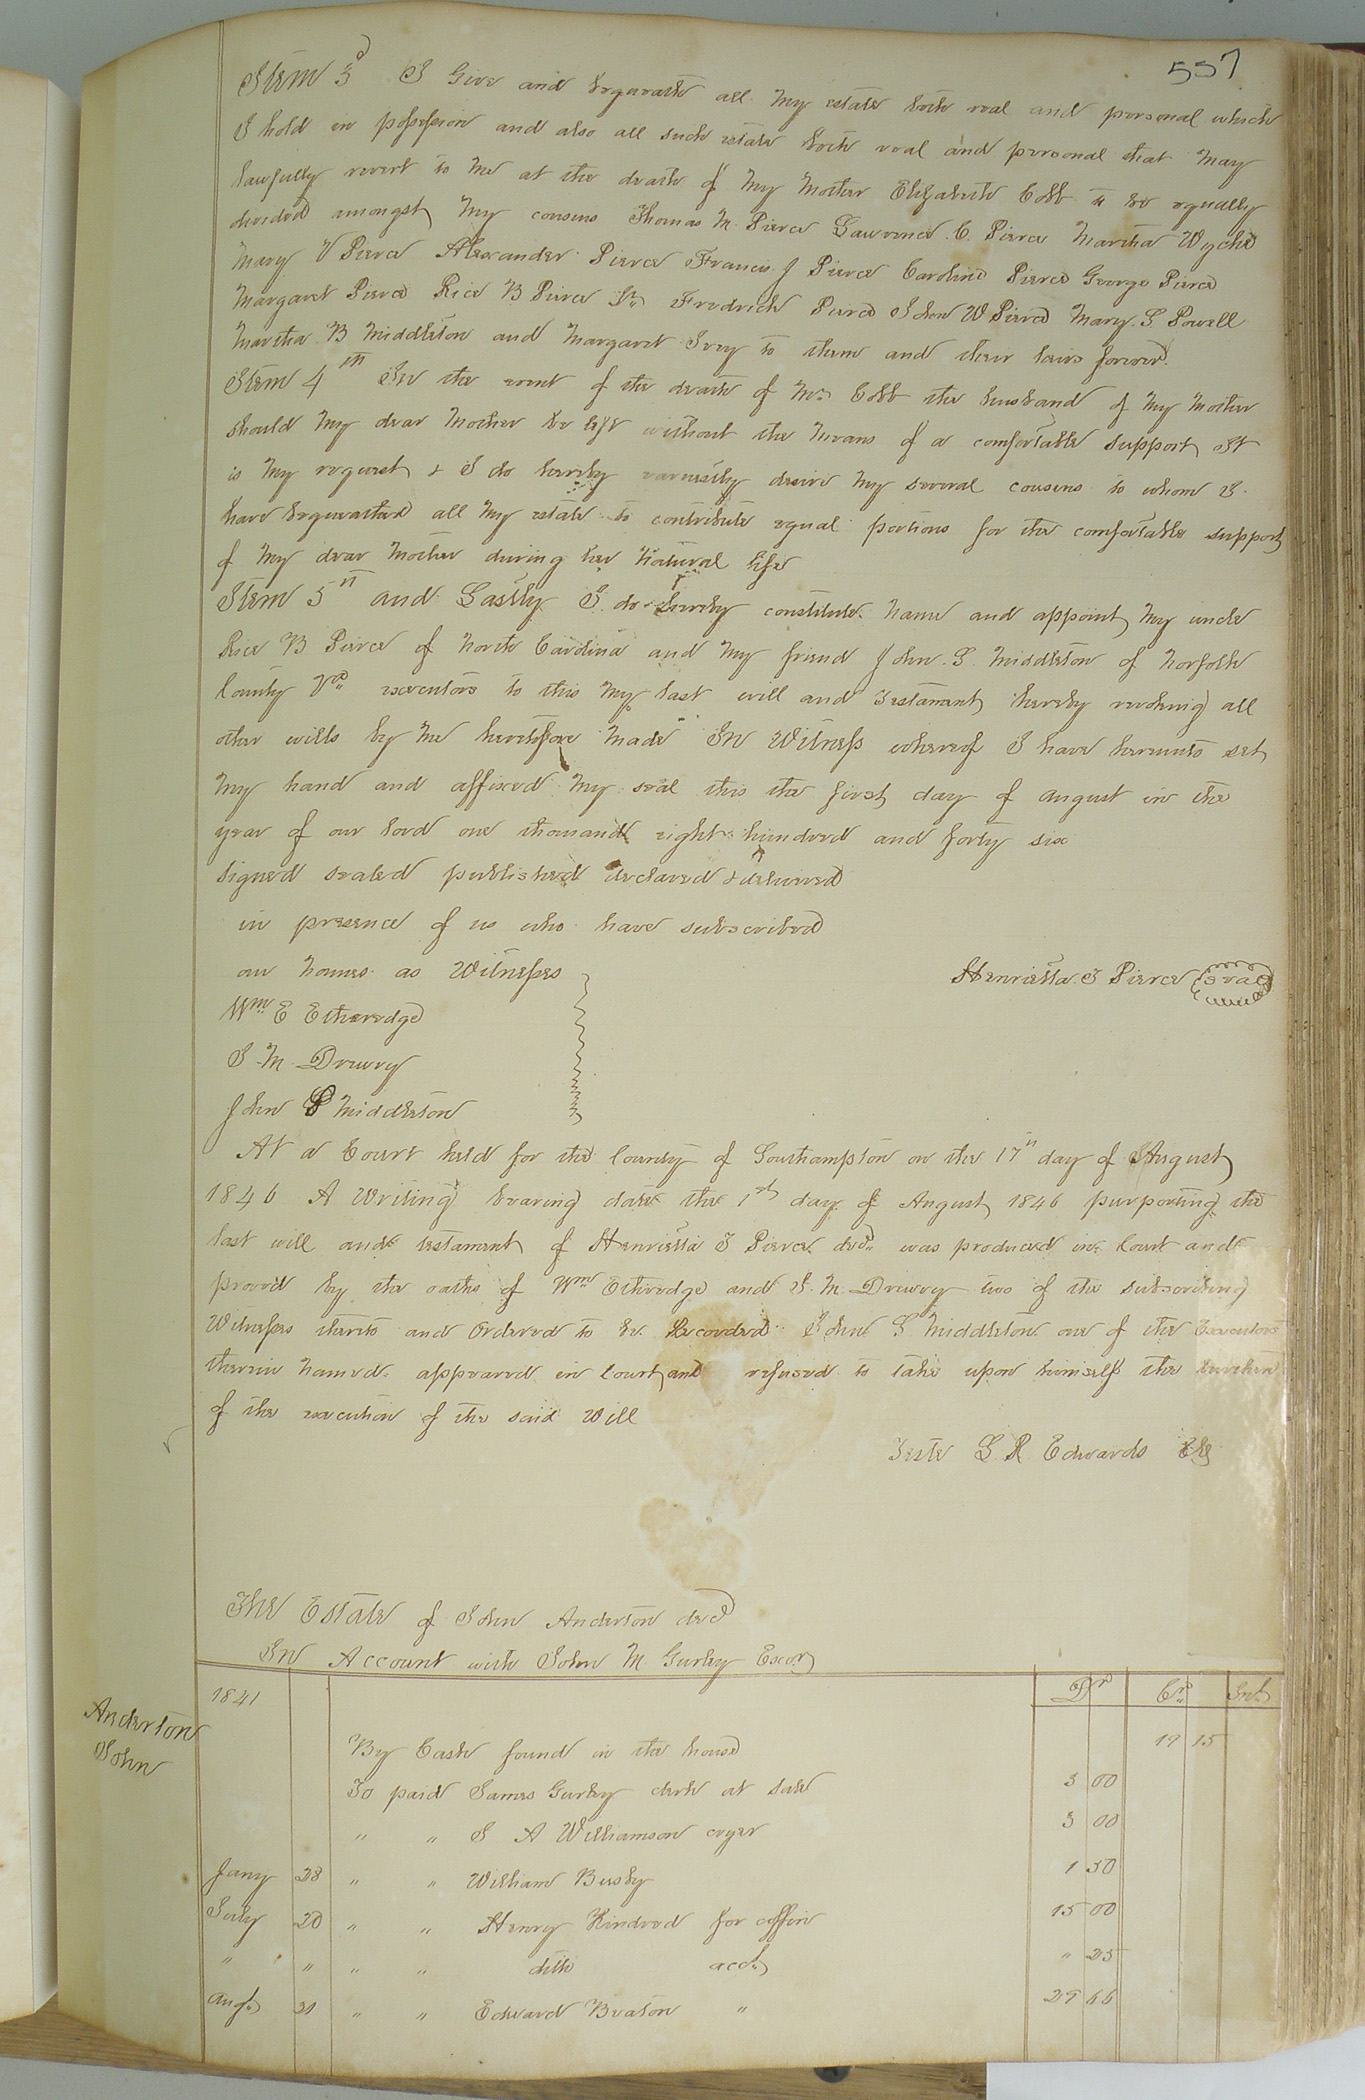 557
Item 3d I Give and bequeath all my estate both real and personal which
I hold in possession and also all such estate both real and personal that may
lawfully revert to me at the death of my Mother Elizabeth Cobb to be equally
divided amongst my cousins Thomas M. Pierce Lawrence C. Pierce Martha Wyche
Mary V Pierce Alexander Pierce Francis J Pierce Caroline Pierce George Pierce
Margaret Pierce Rice B Pierce Fredrick Pierce John W Pierce Mary S. Powell
Martha B Middleton and Margaret Ivey to them and their heirs forever.
Item 4th In the event of the death of Mr Cobb the husband of my Mother
should my dear Mother be left without the means of a comfortable support It
is my request & I do hereby earnestly desire my several cousins to whom I
have bequeathed all my estate to contribute equal portions for the comfortable support
of my dear Mother during her Natural life
Item 5th and Lastly I do hereby constitute name and appoint my uncle
Rice B Pierce of North Carolina and my friend John S. Middleton of Norfolk
County Va executors to this my last will and Testament hereby revoking all
other wills by me heretofore made In Witness whereof I have hereunto set
my hand and affixed my seal this the first day of August in the
year of our lord one thousand eight hundred and forty six
Signed sealed published declared & delivered
in presence of us who have subscribed
our names as Witnesses
Henrietta T Pierce Seal
Wm E Etheredge
S. M. Drewry
John S Middleton
At a Court held for the County of Southampton on the 17th day of August
1846 A Writing bearing date the 1st day of August 1846 purporting the
last will and testament of Henrietta T Pierce decd was produced in Court and
proved by the oaths of Wm Etheredge and S. M. Drewry two of the subscribing
Witnesses thereto and Ordered to be Recorded John S Middleton one of the Executors
therein named appeared in Court and refused to take upon himself the burthen
of the execution of the said Will
Teste L. R. Edwards Clk
The Estate of John Anderton decd
In Account with John M Gurley Excor
1841 Dr Cr Int
Anderton
John
By Cash found in the house 19 15
To paid James Gurley clerk at sale 3 00
" " J A Williamson cryer 3 00
Jany 28 " " William Busby 1 50
July 20 " " Henry Kindred for coffin 15 00
" " " " ditto acct " 25
Augt 31 " " Edward Beaton " 27 66